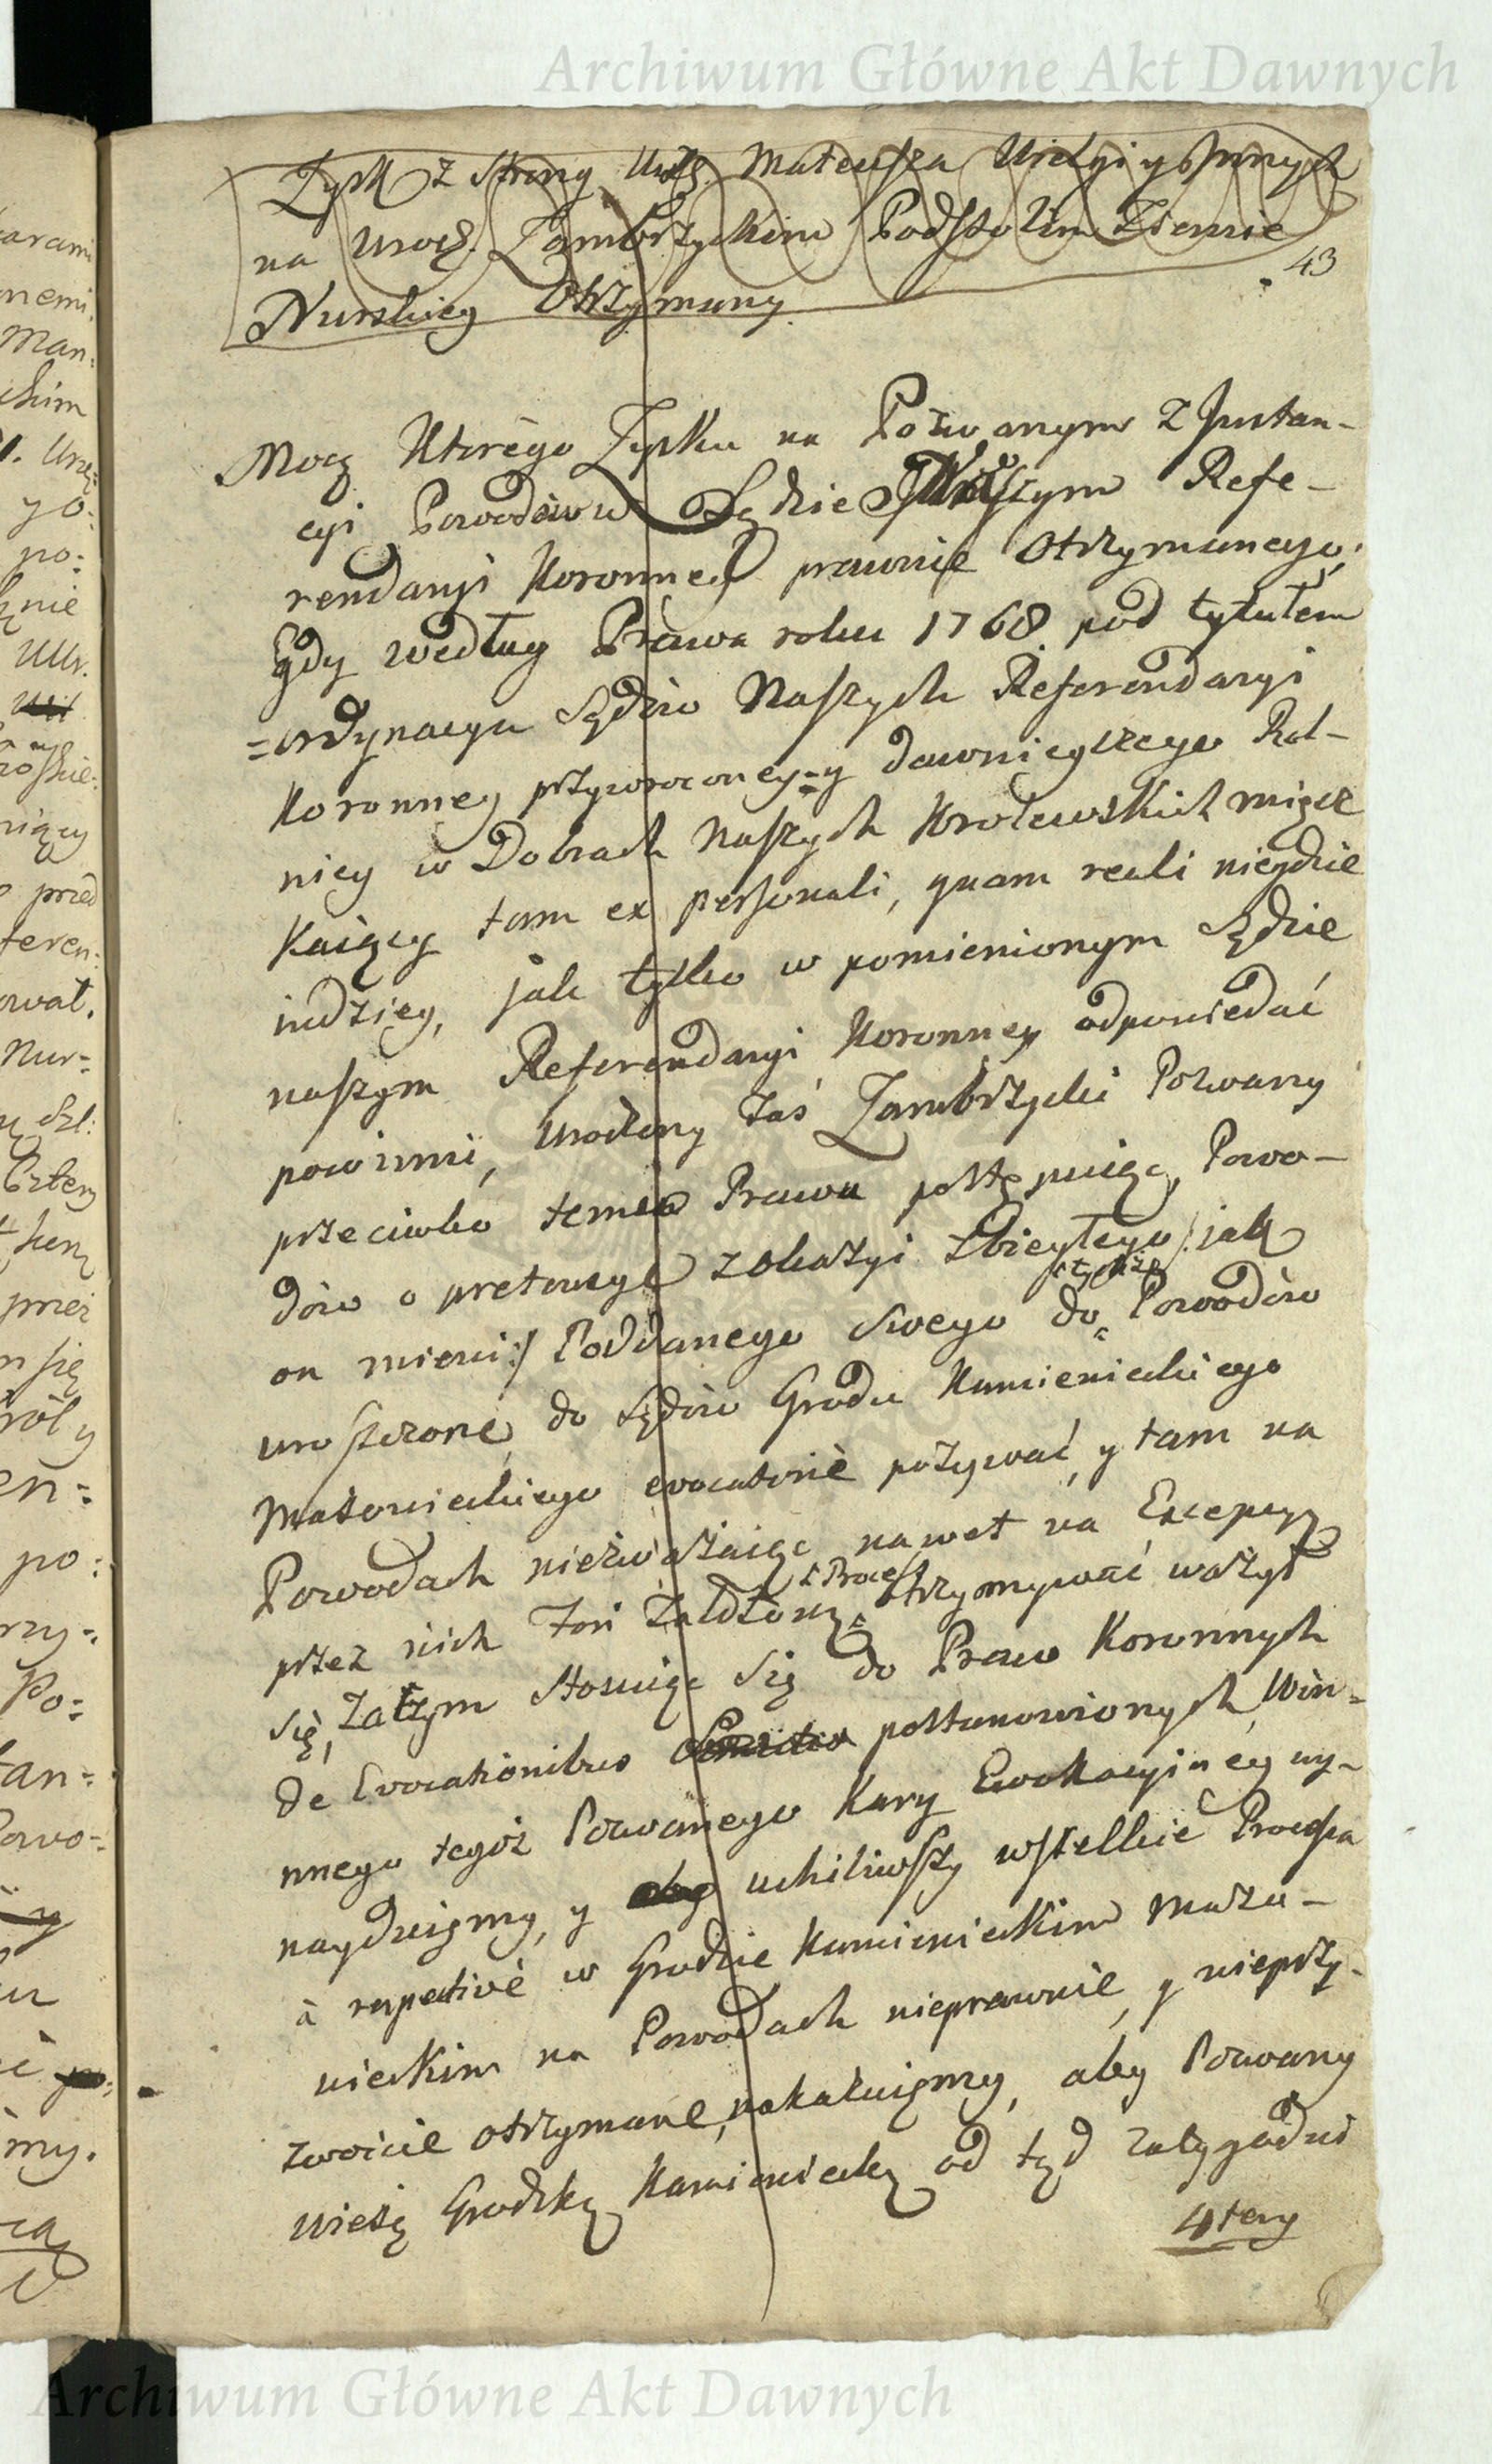 Archiwum Główne Akt Dawnych
Zysk z strony Mateusza y Innych
na Urodz. Zambrzyckim Podstolim Ziemie
43
Nurskiey Otrzymany.
Mocą Ktorego Zysku na Pozwanym z Instan-
cyi Powodow w Sądzie Naszym Refe-
rendaryi Koronney prawnie Otrzymanego,
gdy według Prawa roku 1768 pod tytułem
=ordynacya Sądow Naszych Referendaryi
Koronney przywroconey=y dawnieyszego Rol-
nicy w Dobrach Naszych Krolewskich miesz
Kaiący tam ex personali, quam reali niegdzie
indziey, jak tylko w pomienionym Sądzie
naszym Referendaryi Koronney odpowiedać
powinni, Urodzony zaś Zambrzycki Pozwany
przeciwko temu Prawu postępuiąc, Powo-
dow o pretensye z okazyi zbiegłego /: jak
on mieni :/ Poddanego Swego do Powodow
tychże
uroszczone, do Sądow Grodu Kamienieckiego
Mazowieckiego evocatorie pozywać, y tam na
Powodach niezważaiąc nawet na Excepcyą
przez nich Fori Założoną, otrzymywać ważył
Process
się, Zatym Stosuiąc Się do Praw Koronnych
de Evocationibus postanowionych, Win-
nnego tegoż Pozwanego Kary Ewokacyiney uy-
naydziemy, y uchiliwszy wszelkie Processa
à respective w Grodzie Kamienieckim Mazo-
wieckim na Powodach nieprawnie, y nieprzy-
zwoicie otrzymane, nakazuiemy, aby Pozwany
Wieżę Grodzką Kamieniecką od tąd za tygodni
4tery
Archiwum Główne Akt Dawnych